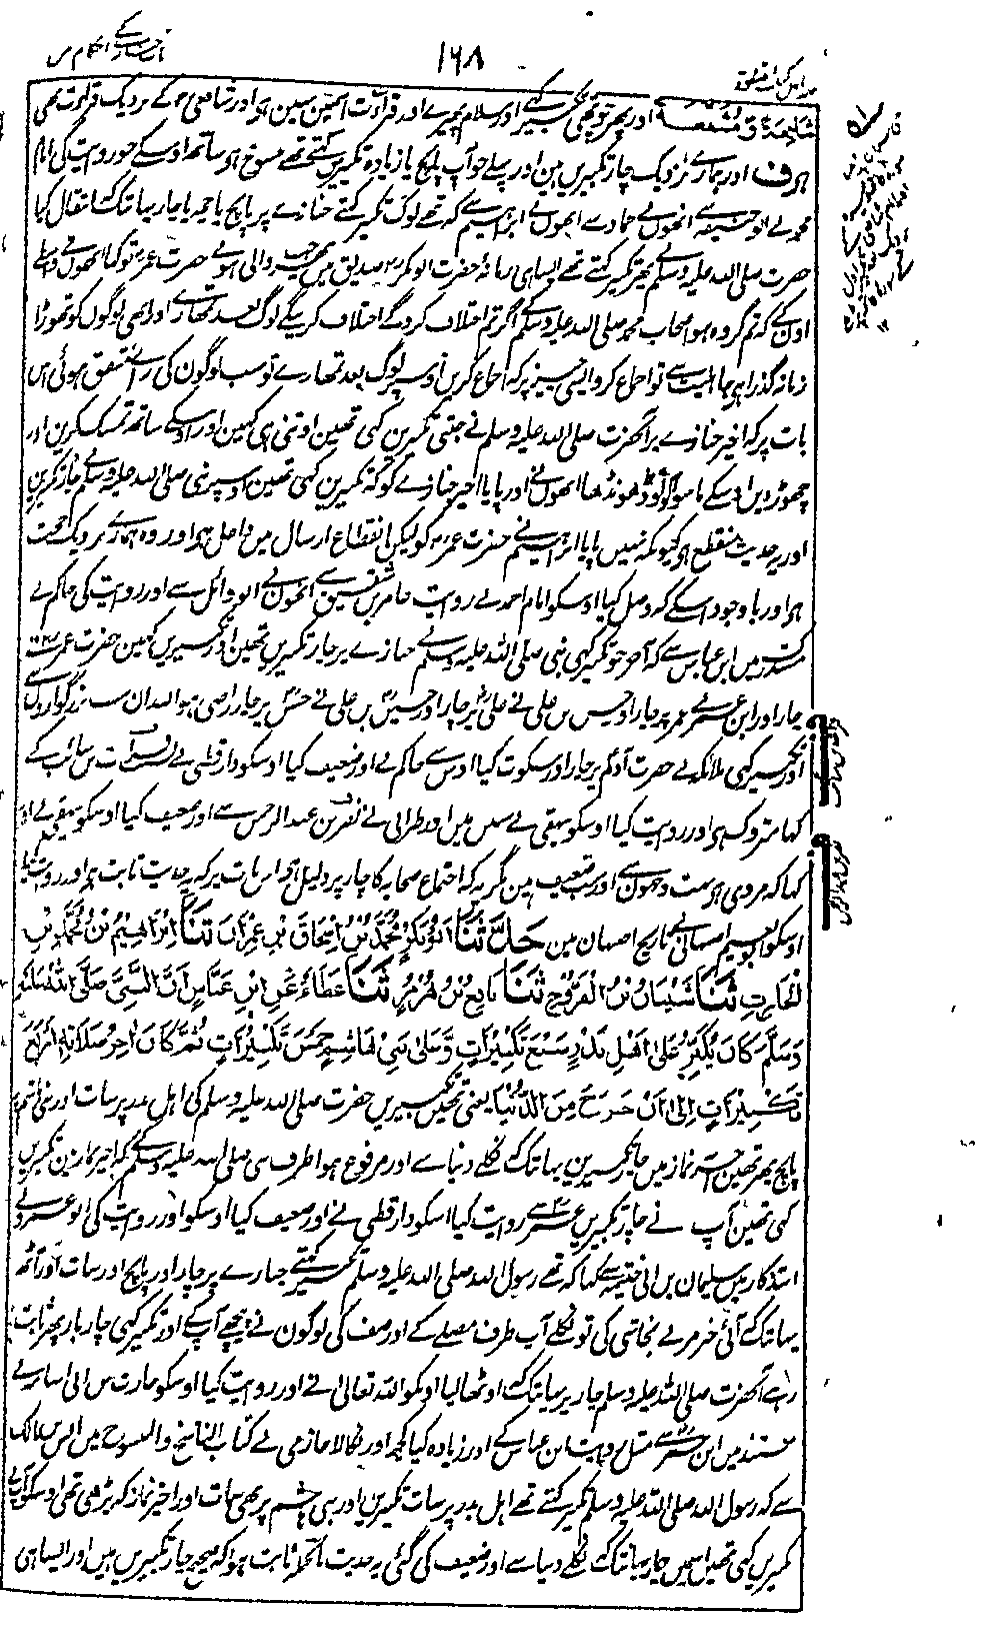 ۱۶۸
شَافِعَةٌ مُشَفَّعَةٌ اور پھر چوتھی تکبیر کہے اور سلام پھیرے اور قراءت اسمین نہین ہے اور شافعی کے نزدیک قراءت بھی
ہے ف اور ہمارے نزدیک چار تکبیرین ہین اور پہلے جو آپ پانچ یا زیادہ تکبیرین کہتے تھے منسوخ ہے ساتھ اوسکے جو روایت کی امام
محمد نے ابو حنیفہ سے انھون نے حماد سے انھون نے ابراہیم سے کہ تھے لوگ تکبیر کہتے جنازے پر پانچ یا چھ یا چار یہانتک کہ انتقال کیا
حضرت صلی اللہ علیہ وسلم نے پھر تکبیر کہتے تھے ایسا ہی زمانۂ حضرت ابو بکر صدیق مین جب والی ہوئے حضرت عمر تو کہا انھون نے واسطے
اون کے کہ تم گروہ ہو اصحاب محمد صلی اللہ علیہ وسلم کے اگر تم اختلاف کروگے اختلاف کرینگے لوگ بعد تمھارے اور ابھی لوگون کو تھوڑا
زمانہ گذرا ہے جاہلیت سے تو اجماع کرو ایسی چیز پر کہ اجماع کرین اوسپر لوگ بعد تمھارے تو سب لوگون کی رائے متفق ہوئی اس
بات پر کہ اخیر جنازے پر آنحضرت صلی اللہ علیہ وسلم نے جتنی تکبیرین کہی تھین اوتنی ہی کہین اور اوسکے ساتھ تمسک کرین اور
چھوڑدین اوسکے ماسوا کو تو ڈھونڈھا انھون نے اور پایا اخیر جنازے کو کہ تکبیرین کہی تھین اوسپر نبی صلی اللہ علیہ وسلم نے چار تکبیرین
اور یہ حدیث منقطع ہے کیونکہ نہین پایا ابراہیم نے حضرت عمر کو لیکن انقطاع ارسال مین داخل ہے اور وہ ہمارے نزدیک حجت
ہے اور باوجود اسکے کہ وصل کیا اوسکو امام احمد نے روایت عامر بن شقیق سے انھون نے ابو وائل سے اور روایت کی حاکم نے
مستدرک مین ابن عباس سے کہ آخر جو تکبیر کہی نبی صلی اللہ علیہ وسلم نے جنازے پر چار تکبیرین تھین اور تکبیرین کہین حضرت عمر نے
چار اور ابن عمر نے عمر پر چار اور حسن بن علی نے علی پر چار اور حسین بن علی نے حسن پر چار راضی ہو اللہ ان سب بزرگوارون سے
اور تکبیر کہی ملائکہ نے حضرت آدم پر چار اور سکوت کیا اوس سے حاکم نے اور ضعیف کیا اوسکو دارقطنی نے فرات بن سائب کے
کہا متروک ہے اور روایت کیا اوسکو بیہقی نے سنن مین اور طبرانی نے نضر بن عبد الرحمن سے اور ضعیف کیا اوسکو بیہقی نے اور
کہا کہ مروی ہے بہت وجہون سے اور سب ضعیف ہین مگر یہ کہ اجتماع صحابہ کا چار پر دلیل ہے اس بات پر کہ یہ حدیث ثابت ہے اور روایت کیا
اوسکو ابو نعیم اصبہانی نے تاریخ اصبہان مین حَدَّثَنَا اَبُوْ بَكْرٍ مُحَمَّدُ بْنُ اِسْحَاقَ بْنِ عِمْرَانَ ثَنَا اِبْرَاهِيْمُ بْنُ مُحَمَّدِ بْنِ
الْحَارِثِ ثَنَا شَيْبَانُ بْنُ الْفَرُّوْخِ ثَنَا نَافِعُ بْنُ هُرْمُزٍ ثَنَا عَطَاءٌ عَنِ ابْنِ عَبَّاسٍ اَنَّ النَّبِيَّ صَلَّى اللّٰهُ عَلَيْهِ
وَسَلَّمَ كَانَ يُكَبِّرُ عَلٰى اَهْلِ بَدْرٍ سَبْعَ تَكْبِيْرَاتٍ وَّعَلٰى بَنِيْ هَاشِمٍ خَمْسَ تَكْبِيْرَاتٍ ثُمَّ كَانَ اٰخِرُ صَلَاتِهٖ اَرْبَعَ
تَكْبِيْرَاتٍ اِلٰى اَنْ خَرَجَ مِنَ الدُّنْيَا یعنی تھین تکبیرین حضرت صلی اللہ علیہ وسلم کی اہل بدر پر سات اور بنی ہاشم پر
پانچ پھر تھین آخر نماز مین چار تکبیرین یہانتک کہ نکلے دنیا سے اور مرفوع ہوا طرف نبی صلی اللہ علیہ وسلم کے کہ اخیر نماز مین تکبیرین
کہی تھین آپ نے چار تکبیرین عمر سے روایت کیا اسکو دارقطنی نے اور ضعیف کیا اوسکو اور روایت کی ابو عمرو نے
استذکار مین سلیمان بن ابی حثمہ سے کہا کہ تھے رسول اللہ صلی اللہ علیہ وسلم تکبیر کہتے جنازے پر چار اور پانچ اور سات اور آٹھ
یہانتک کہ آئی خبر مرنے نجاشی کی تو نکلے آپ طرف مصلے کے اور صف کی لوگون نے پیچھے آپ کے اور تکبیر کہی چار بار پھر ثابت
رہے آنحضرت صلی اللہ علیہ وسلم چار پر یہانتک کہ اوٹھالیا اونکو اللہ تعالیٰ نے اور روایت کیا اوسکو حارث بن ابی اسامہ نے
مسند مین ابن عمر سے مثل روایت ابن عباس کے اور زیادہ کیا کچھ اور نکالا حازمی نے کتاب الناسخ والمنسوخ مین انس بن مالک
سے کہ رسول اللہ صلی اللہ علیہ وسلم تکبیر کہتے تھے اہل بدر پر سات تکبیرین اور بنی ہاشم پر بھی سات اور اخیر نماز کہ پڑھی تھی اوسکو آپ نے
تکبیرین کہی تھین اسمین چار یہانتک کہ نکلے دنیا سے اور ضعیف کی گئی یہ حدیث الحاصل ثابت ہوا کہ صحیح چار تکبیرین ہین اور ایسا ہی